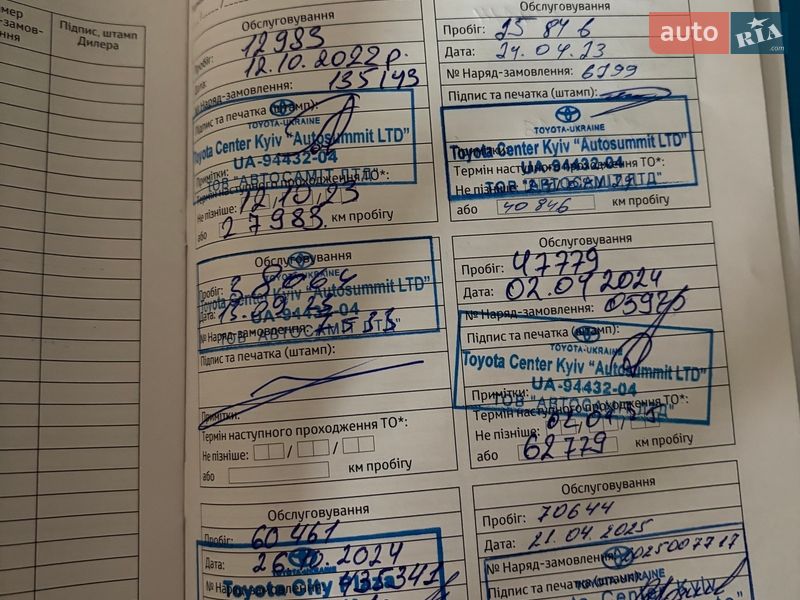 мер
замов-
ення
Підпис, штамп
Дилера
Обслуговування
Пробіг: 12983
Дата: 12.10.2022 р.
№ Наряд-замовлення: 135143
Підпис та печатка (штамп):
TOYOTA-UKRAINE
Toyota Center Kyiv "Autosummit LTD"
UA-94432-04
ТОВ "АВТОСАМІТ ЛТД"
Примітки:
Термін наступного проходження ТО*:
Не пізніше: 12.10.23
або 27983 км пробігу
Обслуговування
Пробіг: 25846
Дата: 24.04.23
№ Наряд-замовлення: 6799
Підпис та печатка (штамп):
TOYOTA-UKRAINE
Toyota Center Kyiv "Autosummit LTD"
UA-94432-04
ТОВ "АВТОСАМІТ ЛТД"
Термін наступного проходження ТО*:
Не пізніше:
або 40846 км пробігу
Обслуговування
Пробіг:
TOYOTA-UKRAINE
Toyota Center Kyiv "Autosummit LTD"
Дата:
UA-94432-04
№ Наряд-замовлення:
ТОВ "АВТОСАМІТ ЛТД"
Підпис та печатка (штамп):
Примітки:
Термін наступного проходження ТО*:
Не пізніше: / /
або км пробігу
Обслуговування
Пробіг: 47779
Дата: 02.04.2024
№ Наряд-замовлення:
Підпис та печатка (штамп):
TOYOTA-UKRAINE
Toyota Center Kyiv "Autosummit LTD"
UA-94432-04
Примітки:
ТОВ "АВТОСАМІТ ЛТД"
Термін наступного проходження ТО*:
Не пізніше:
або 62779 км пробігу
Обслуговування
Пробіг: 60461
Дата: 26.10.2024
№ Наряд-замовлення: 135341
Toyota City Plaza
Обслуговування
Пробіг: 70644
Дата: 21.04.2025
№ Наряд-замовлення: 025007717
Підпис та печатка (штамп):
Toyota Center Kyiv
auto RIA.com